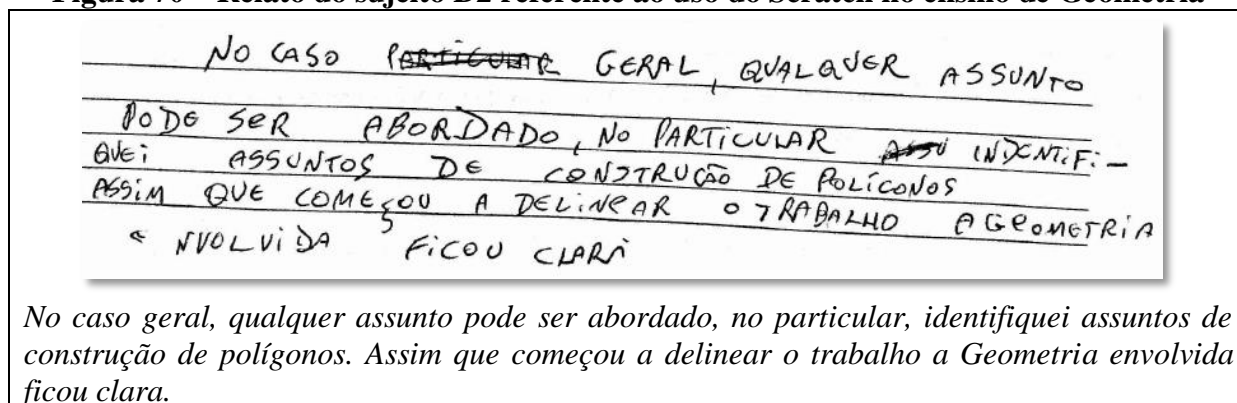 Figura 70 – Relato do sujeito D2 referente ao uso do Scratch no ensino de Geometria
NO CASO PARTICULAR GERAL, QUALQUER ASSUNTO
PODE SER ABORDADO, NO PARTICULAR ASSU INDENTIFI-
QUEI ASSUNTOS DE CONSTRUÇÃO DE POLÍGONOS
ASSIM QUE COMEÇOU A DELINEAR O TRABALHO A GEOMETRIA
ENVOLVIDA FICOU CLARA
No caso geral, qualquer assunto pode ser abordado, no particular, identifiquei assuntos de
construção de polígonos. Assim que começou a delinear o trabalho a Geometria envolvida
ficou clara.